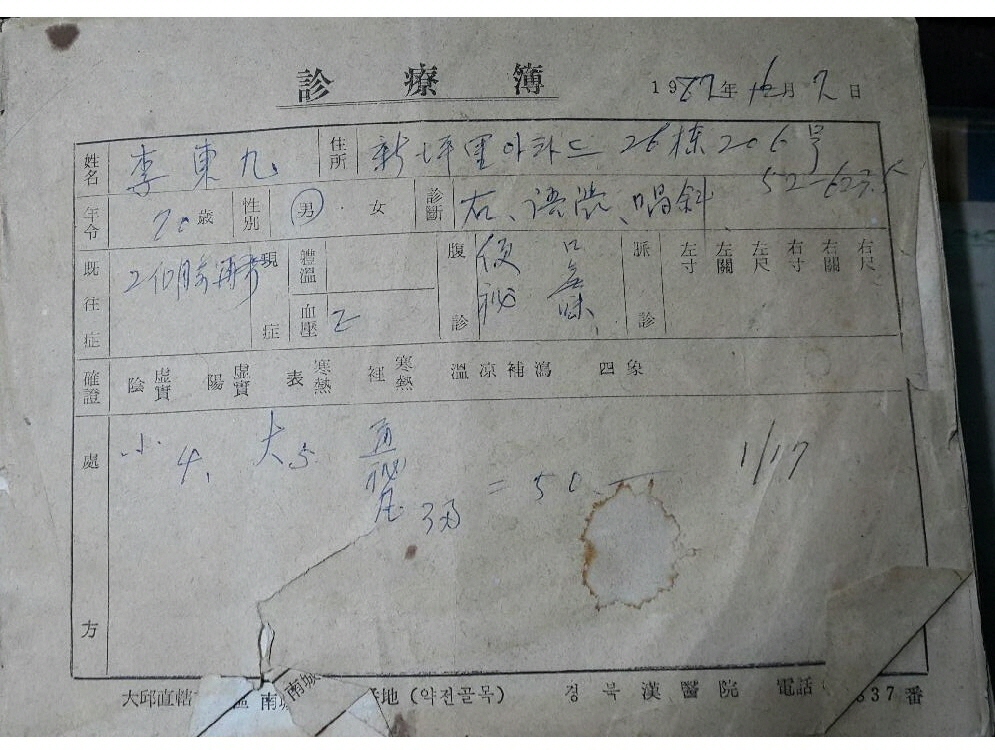 診療簿
1987年 12月 7日
姓名 李東九 住所 新坪里아파트 26棟 206号
52-6275
年令 70歳 性別 男・女 診斷 右、語澁、喎斜
既往症 2個月前 現症 體溫 血壓 腹診 便秘 口無味 脈診 左寸 左關 左尺 右寸 右關 右尺
確證 陰虛實 陽虛實 表寒熱 裡寒熱 溫凉補瀉 四象
處方 小4、 大5. = 50 1/17
大邱直轄 區 南城 番地 (약전골목) 경북漢醫院 電話 837番
南城